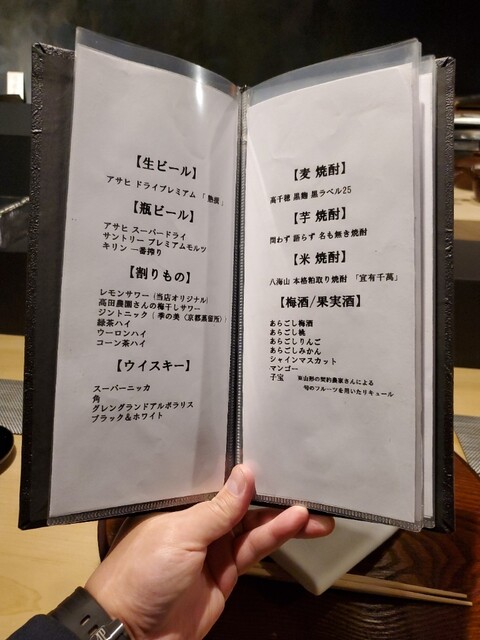 【生ビール】
アサヒ ドライプレミアム 「 熟撰 」
【瓶ビール】
アサヒ スーパードライ
サントリー プレミアムモルツ
キリン 一番搾り
【割りもの】
レモンサワー (当店オリジナル)
高田農園さんの梅干しサワー
ジントニック ( 季の美 (京都蒸留所)
緑茶ハイ
ウーロンハイ
コーン茶ハイ
【ウイスキー】
スーパーニッカ
角
グレングラントアルボラリス
ブラック＆ホワイト
【麦 焼酎】
高千穂 黒麹 黒ラベル25
【芋 焼酎】
問わず 語らず 名も無き焼酎
【米 焼酎】
八海山 本格粕取り焼酎 「宜有千萬」
【梅酒/果実酒】
あらごし梅酒
あらごし桃
あらごしりんご
あらごしみかん
シャインマスカット
マンゴー
子宝 ※山形の契約農家さんによる
旬のフルーツを用いたリキュール